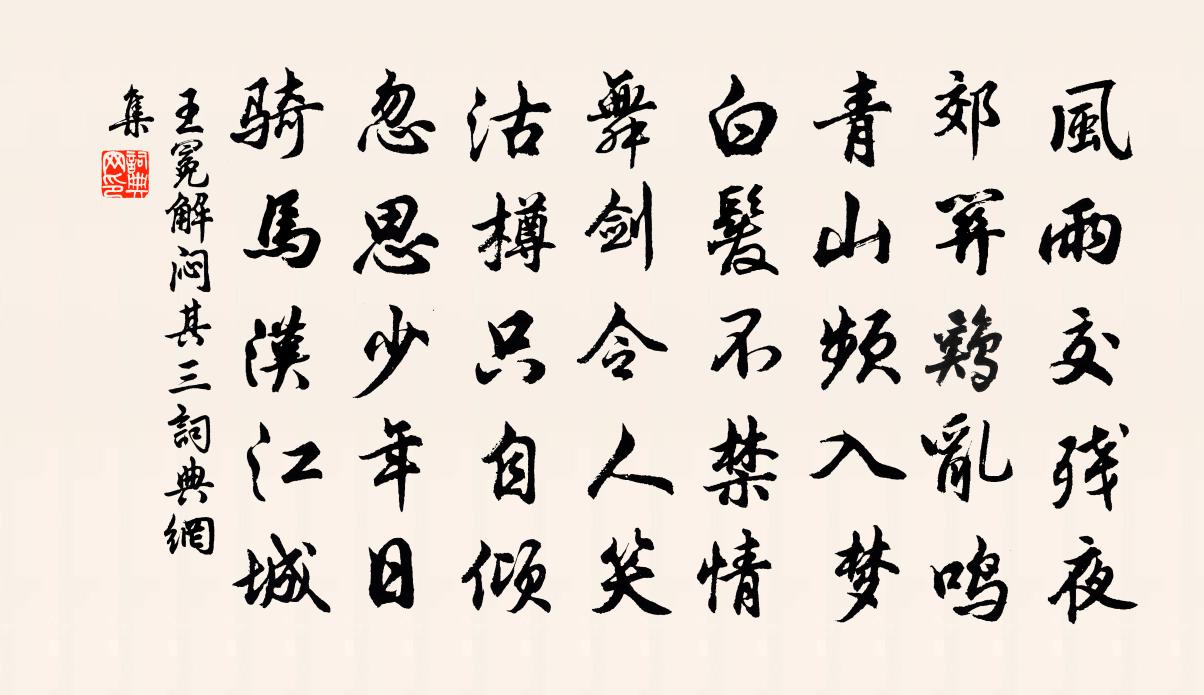 風雨交残夜
郊鷄亂鳴
青山頻入梦
白髮不禁情
舞剑令人笑
沽樽只自倾
忽思少年日
骑馬漢江城
王冕解闷其三詞典網
集
詞典
网印